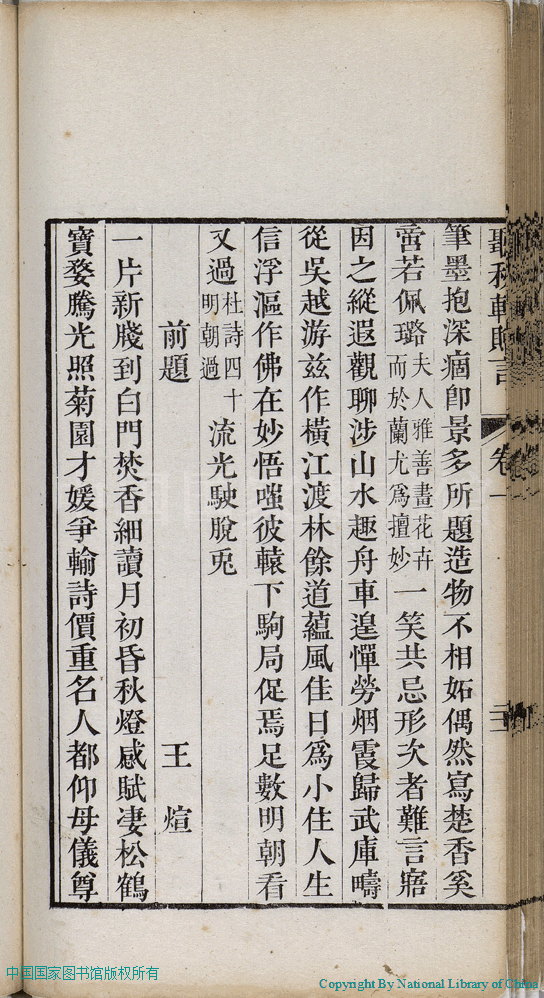 聽秋軒贈言 卷一
筆墨抱深痼卽景多所題造物不相妬偶然寫楚香奚
啻若佩璐夫人雅善畫花卉而於蘭尤爲擅妙一笑共忌形次者難言寤
因之縱遐觀聊涉山水趣舟車遑憚勞烟霞歸武庫疇
從吳越游兹作橫江渡林餘道蘊風佳日爲小住人生
信浮漚作佛在妙悟嗤彼轅下駒局促焉足數明朝看
又過杜詩四十明朝過流光駛脫兎
前題 王煊
一片新牋到白門焚香細讀月初昏秋燈感賦凄松鶴
寶婺騰光照菊園才媛爭輸詩價重名人都仰母儀尊
中国国家图书馆版权所有
Copyright By National Library of China